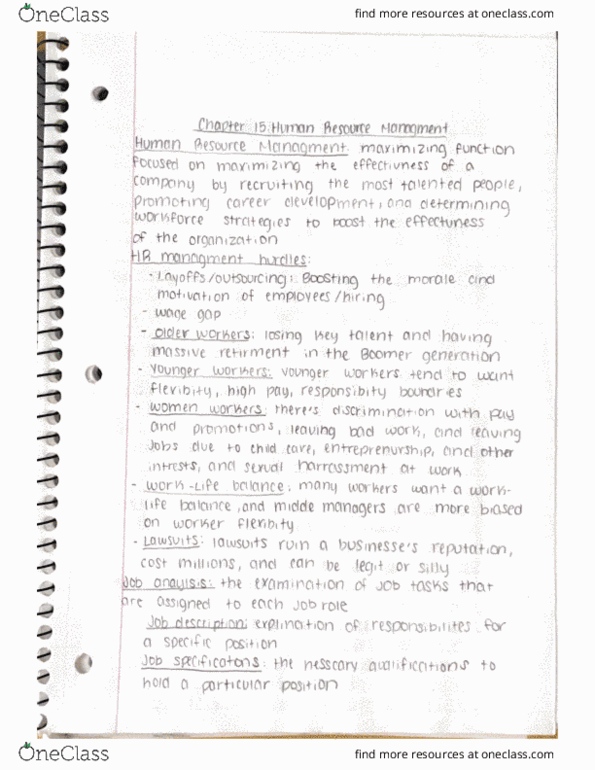 OneClass
find more resources at oneclass.com
Chapter 15: Human Resource Managment
Human Resource Managment: maximizing function
focused on maximizing the effectivness of a
company by recruiting the most talented people,
promoting career development, and determining
workforce strategies to boost the effectivness
of the organization
HR managment hurdles:
- Layoffs/outsourcing: Boosting the morale and
motivation of employees/hiring
- wage gap
- older workers: losing key talent and having
massive retirment in the Boomer generation
- younger workers: younger workers tend to want
flexibity, high pay, responsibity boundries
- women workers: there's discrimination with pay
and promotions, leaving bad work, and leaving
Jobs due to child care, entreprenurship, and other
intrests, and sexual harrassment at work
- work-life balance: many workers want a work-
life balance, and midde managers are more biased
on worker flexibity
- Lawsuits: lawsuits ruin a businesse's reputation,
cost millions, and can be legit or silly
Job analysis: the examination of Job tasks that
are assigned to each Job role
Job description: explination of responsibilites for
a specific position
Job specificatons: the nesscary qualifications to
hold a particular position
OneClass
find more resources at oneclass.com